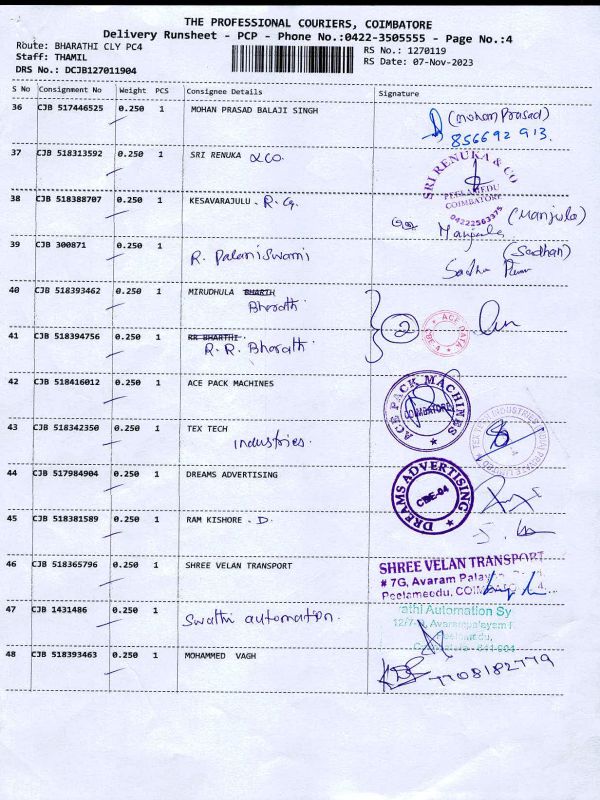 THE PROFESSIONAL COURIERS, COIMBATORE
Delivery Runsheet - PCP - Phone No.:0422-3505555 - Page No.:4
Route: BHARATHI CLY PC4
Staff: THAMIL
DRS No.: DCJB127011904
RS No.: 1270119
RS Date: 07-Nov-2023
S No Consignment No Weight PCS Consignee Details Signature
36 CJB 517446525 0.250 1 MOHAN PRASAD BALAJI SINGH (Mohan Prasad)
856692 913.
37 CJB 518313592 0.250 1 SRI RENUKA & CO. SRI RENUKA & CO
PEELAMEDU
COIMBATORE
04222563975
38 CJB 518388707 0.250 1 KESAVARAJULU . R. G. Manjula (Manjula)
39 CJB 300871 0.250 1 R. Palaniswami (Sadhan)
40 CJB 518393462 0.250 1 MIRUDHULA BHARTH
Bharath
41 CJB 518394756 0.250 1 RR BHARTHI.
R. R. Bharath. 2 ACE DATA
CBE 4
42 CJB 518416012 0.250 1 ACE PACK MACHINES ACE PACK MACHINES
COIMBATORE
43 CJB 518342350 0.250 1 TEX TECH
industries. TEX TECH INDUSTRIES
44 CJB 517984904 0.250 1 DREAMS ADVERTISING DREAMS ADVERTISING
CBE-04
45 CJB 518381589 0.250 1 RAM KISHORE . D.
46 CJB 518365796 0.250 1 SHREE VELAN TRANSPORT SHREE VELAN TRANSPORT
# 7G, Avaram Palay
Peelamedu,
47 CJB 1431486 0.250 1 Swathi automation. athi Automation Sy
Avarampalayam
Peelamedu,
641 004
48 CJB 518393463 0.250 1 MOHAMMED VAGH 7708182779